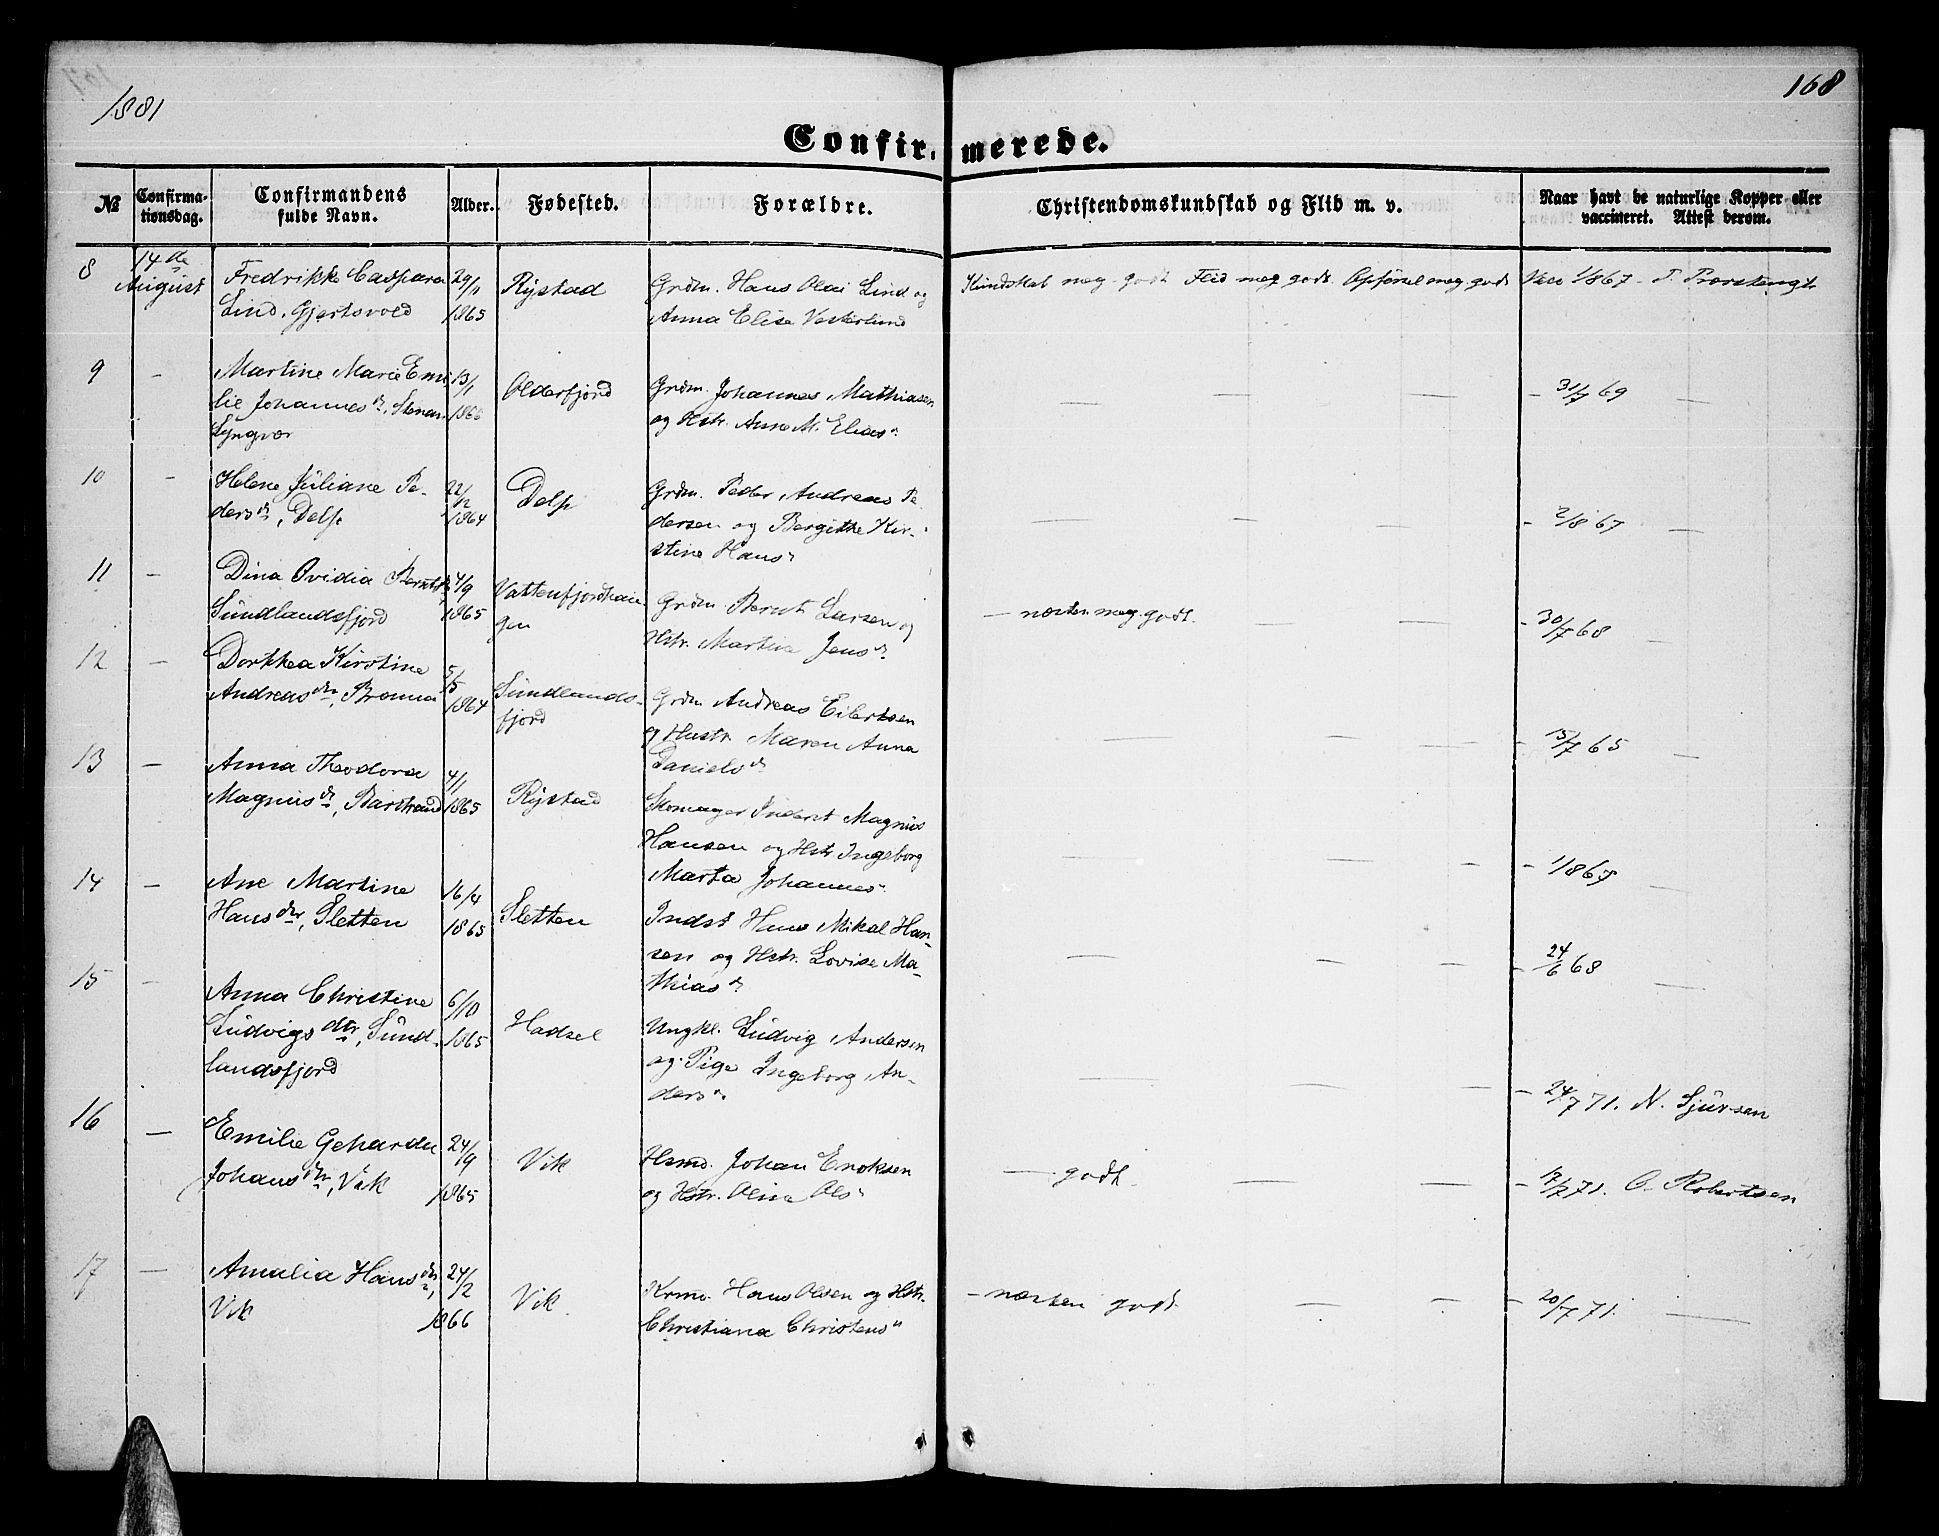 1881
168
Confirmerede.
№
Confirmationsdag.
Confirmandens fulde Navn.
Alder.
Fødested.
Forældre.
Christendomskundskab og Flid m. v.
Naar havt de naturlige Kopper eller vaccineret. Attest derom.
8
14de August
Fredrikke Caspara
Lind, Gjertsvold
29/1 1865
Rystad
Grdm. Hans Olai Lind og
Anna Elise Vesterlund
Kundskab meg. godt Flid meg godt Opførsel meg godt
Vacc 1/8 67
9 —
Martine Marie Emi
lie Johannes dr, Stenen
Lyngvær
13/1 1866
Olderfjord
Grdm. Johannes Mathiasen
og Hstr. Anne M. Elias"
— — — —
— 31/7 69 —
10 —
Helene Juliane Pe-
ders dr, Delp
22/12 1864
Delp
Grdm. Peder Andreas Pe
dersen og Bergitte Kir-
stine Hans"
— — — —
— 2/8 67 —
11 —
Dina Ovidia Bernts dr,
Sundlandsfjord
4/9 1865
Vattenfjordhau
gen
Grdm. Bernt Larsen og
Hstr. Martine Jens dr
— næsten meg. godt. — —
— 30/7 68 —
12 —
Dorthea Kirstine
Andreas dtr, Brenna
5/5 1864
Sundlands-
fjord
Grdm Andreas Eilertsen
og Hustr. Maren Anna
Daniels dr
— — —
— 13/7 65 —
13 —
Anna Theodora
Magnus dr, Barstrand
4/1 1865
Rystad
Skomager Inderst Magnus
Hansen og Hstr Ingeborg
Marta Johannes"
— — —
— 1/8 67 —
14 —
Ane Martine
Hans dtr, Sletten
16/4 1865
Sletten
Indst Hans Mikal Han-
sen og Hstr. Lovise Ma-
thias dr
— — —
— 24/6 68 —
15 —
Anna Christine
Ludvigs dtr, Sund-
landsfjord
6/10 1865
Hadsel
Ungkl. Ludvig Andersen
og Pige Ingeborg An-
ders"
— — —
— 24/7 71. N. Sjursen
16 —
Emilie Geharda
Johans dtr, Vik
24/9 1865
Vik
Hsmd. Johan Enoksen
og Hstr. Olina Ols"
— godt. — —
— 17/7 71. O. Robertsen
17 —
Amalia Hans dtr,
Vik
24/2 1866
Vik
Hans Olsen og Hstr.
Christiana Christens"
— næsten godt — —
— 20/7 71. —